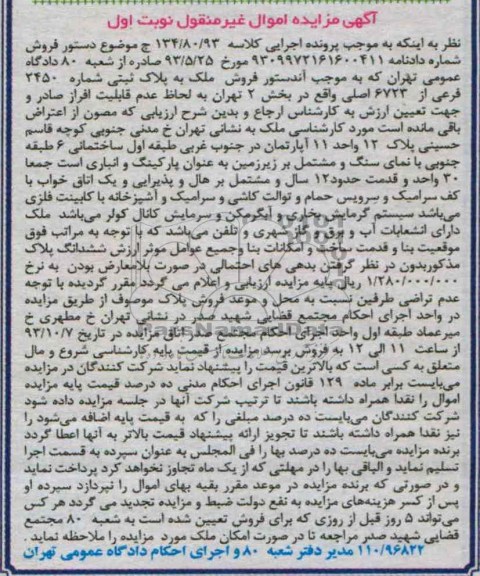 آگهی مزایده اموال غیرمنقول نوبت اول
نظر به اینکه به موجب پرونده اجرایی کلاسه ۱۳۴/۸۰/۹۳ ج موضوع دستور فروش
شماره دادنامه ۹۳۰۹۹۷۲۱۶۱۶۰۰۴۱۱ مورخ ۹۳/۵/۲۵ صادره از شعبه ۸۰ دادگاه
عمومی تهران که به موجب آندستور فروش ملک به پلاک ثبتی شماره ۲۴۵۰
فرعی از ۶۷۲۳ اصلی واقع در بخش ۲ تهران به لحاظ عدم قابلیت افراز صادر و
جهت تعیین ارزش به کارشناس ارجاع و بدین شرح ارزیابی که مصون از اعتراض
باقی مانده است مورد کارشناسی ملک به نشانی تهران خ مدنی جنوبی کوچه قاسم
حسینی پلاک ۱۲ واحد ۱۱ آپارتمان در جنوب غربی طبقه اول ساختمانی ۶ طبقه
جنوبی با نمای سنگ و مشتمل بر زیرزمین به عنوان پارکینگ و انباری است جمعا
۳۰ واحد و قدمت حدود۱۲ سال و مشتمل بر هال و پذیرایی و یک اتاق خواب با
کف سرامیک و سرویس حمام و توالت کاشی و سرامیک و آشپزخانه با کابینت فلزی
می‌باشد سیستم گرمایش بخاری و آبگرمکن و سرمایش کانال کولر می‌باشد ملک
دارای انشعابات آب و برق و گاز شهری و تلفن می‌باشد که با توجه به مراتب فوق
موقعیت بنا و قدمت ساخت و امکانات بنا وجمیع عوامل موثر ارزش ششدانگ پلاک
مذکوربدون در نظر گرفتن بدهی های احتمالی در صورت بلامعارض بودن به نرخ
۱/۲۸۰/۰۰۰/۰۰۰ ریال پایه مزایده ارزیابی و اعلام می گردد مقرر گردیده با توجه
عدم تراضی طرفین نسبت به محل و موعد فروش پلاک موصوف از طریق مزایده
در واحد اجرای احکام مجتمع قضایی شهید صدر در نشانی تهران خ مطهری خ
میرعماد طبقه اول واحد اجرای احکام مجتمع صدر اتاق مزایده در تاریخ ۹۳/۱۰/۷
از ساعت ۱۱ الی ۱۲ به فروش برسد مزایده از قیمت پایه کارشناسی شروع و مال
متعلق به کسی است که بالاترین قیمت را پیشنهاد نماید شرکت کنندگان در مزایده
می‌بایست برابر ماده ۱۲۹ قانون اجرای احکام مدنی ده درصد قیمت پایه مزایده
اموال را نقدا همراه داشته باشند تا ترتیب شرکت آنها در جلسه مزایده داده شود
شرکت کنندگان می‌بایست ده درصد مبلغی را که به قیمت پایه اضافه می‌شود را
نیز نقدا همراه داشته باشند تا تجویز ارائه پیشنهاد قیمت بالاتر به آنها اعطا گردد
برنده مزایده می‌بایست ده درصد بها را فی المجلس به عنوان سپرده به قسمت اجرا
تسلیم نماید و الباقی بها را در مهلتی که از یک ماه تجاوز نخواهد کرد پرداخت نماید
و در صورتی که برنده مزایده در موعد مقرر بقیه بهای اموال را نپردازد سپرده او
پس از کسر هزینه‌های مزایده به نفع دولت ضبط و مزایده تجدید می گردد هر کس
می‌تواند ۵ روز قبل از روزی که برای فروش تعیین شده است به شعبه ۸۰ مجتمع
قضایی شهید صدر مراجعه تا در صورت امکان ملک مورد مزایده را ملاحظه نماید .
۱۱۰/۹۶۸۲۲ مدیر دفتر شعبه ۸۰ و اجرای احکام دادگاه عمومی تهران